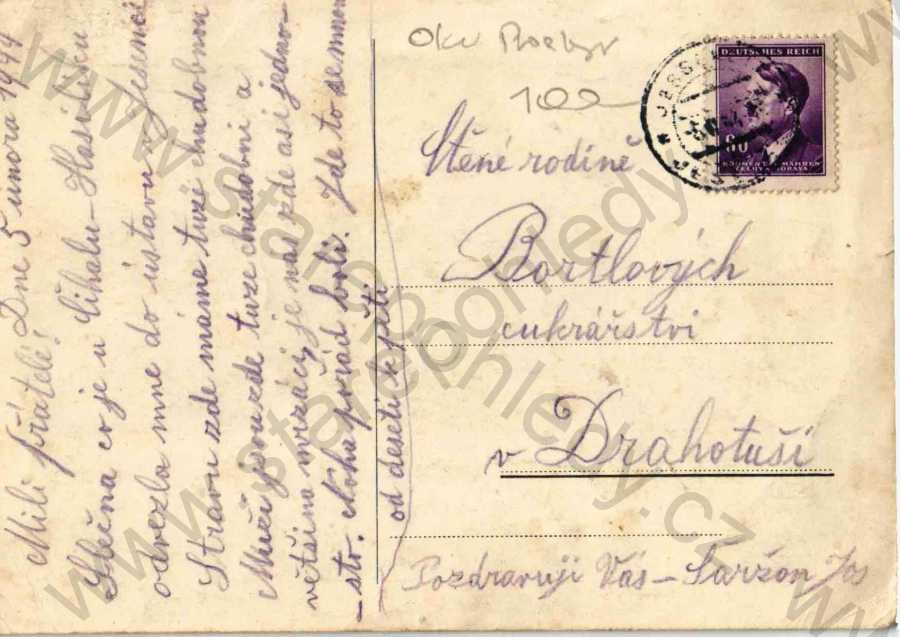 Milí přátelé! Dne 5 února 1944
Slečna co je u Číhalu-Hasičicu
odvezla mne do ústavu v Jesenci
Stravu zde máme tuze chudobnou
Muži jsou zde tuze chudobní a
většina mrzáci, je nas zde asi jedno-
sto. Noha pořád bolí. Jde to semnou
od deseti k pěti
Ctěné rodině
Bortlových
cukrářství
v Drahotuši
Pozdravuji Vás - Saržon Jos
100
DEUTSCHES REICH
80
BÖHMEN U. MÄHREN
ČECHY A MORAVA
www.starepohledy.cz